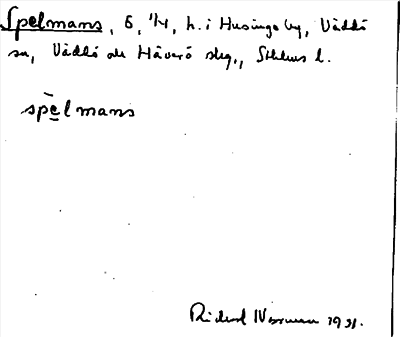 Spelmans, 6, 1/4, h. i Husinge by, Väddö
sn, Väddö och Häverö skg., Sthlms l.
spelmans
Rickard 1931.